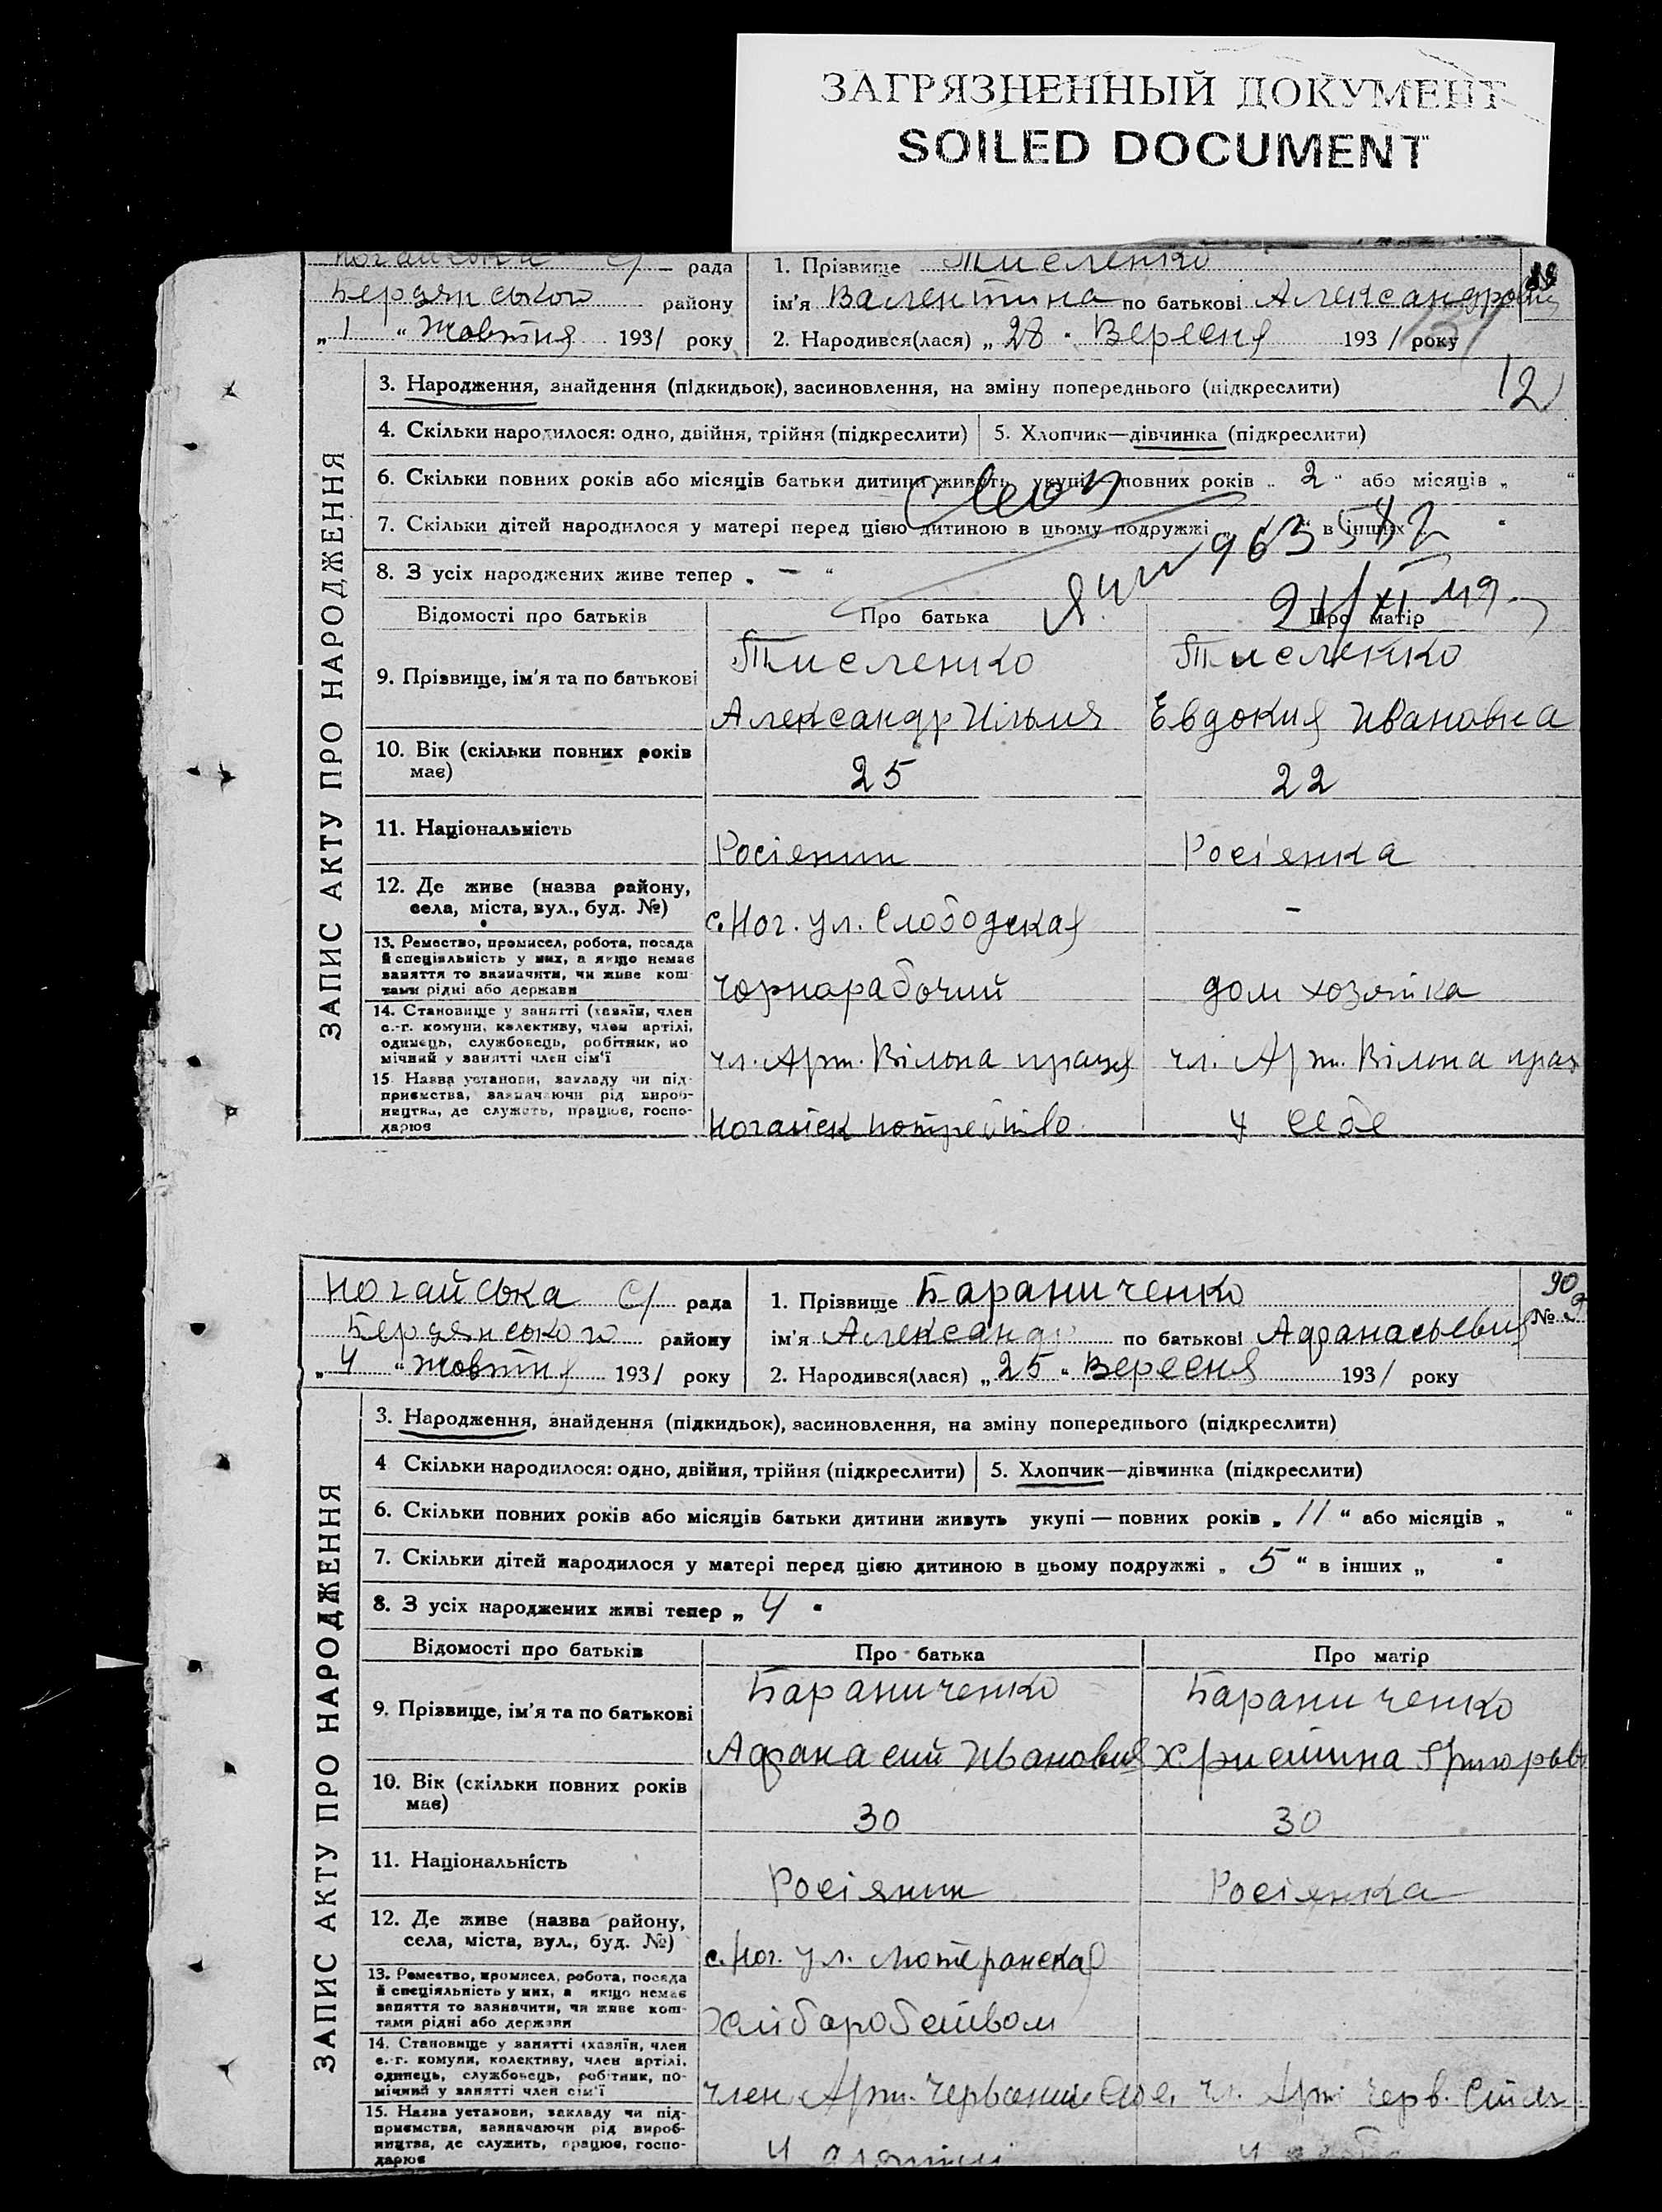 ЗАГРЯЗНЕННЫЙ ДОКУМЕНТ
SOILED DOCUMENT
Ногайська С/ рада
Бердянського району
„ 1 “ Жовтня 1931 року
1. Прізвище Тисленко
ім'я Валентина по батькові Александровна
2. Народився(лася) „ 28 “ Вересня 1931 року
89
12
ЗАПИС АКТУ ПРО НАРОДЖЕННЯ
3. Народження, знайдення (підкидьок), засиновлення, на зміну попереднього (підкреслити)
4. Скільки народилося: одно, двійня, трійня (підкреслити) 5. Хлопчик—дівчинка (підкреслити)
6. Скільки повних років або місяців батьки дитини живуть укупі—повних років „ 2 “ або місяців „ “
7. Скільки дітей народилося у матері перед цією дитиною в цьому подружжі „ “ в інших „ “
963582
8. З усіх народжених живе тепер „ — “
21/XI 49
Відомості про батьків Про батька Про матір
9. Прізвище, ім'я та по батькові
Тисленко Тисленко
Александр Ильич Евдокия Ивановна
10. Вік (скільки повних років має) 25 22
11. Національність Росіянин Росіянка
12. Де живе (назва району, села, міста, вул., буд. №) с. Ног. ул. Слободская —
13. Ремество, промисел, робота, посада й спеціяльність у них, а якщо немає заняття то зазначити, чи живе коштами рідні або держави
чорнорабочий дом хозяйка
14. Становище у занятті (хазяїн, член с.-г. комуни, колективу, член артілі, одинець, службовець, робітник, помічний у занятті член сім'ї
чл. Арт. Вільна праця чл. Арт. Вільна прац
15. Назва установи, закладу чи підприємства, зазначаючи рід виробництва, де служить, працює, господарює
Ногайск у себе
Ногайська С/ рада
Бердянського району
„ 4 “ Жовтня 1931 року
1. Прізвище Бараниченко
ім'я Александр по батькові Афанасьевич
2. Народився(лася) „ 25 “ Вересня 1931 року
90
№
ЗАПИС АКТУ ПРО НАРОДЖЕННЯ
3. Народження, знайдення (підкидьок), засиновлення, на зміну попереднього (підкреслити)
4 Скільки народилося: одно, двійня, трійня (підкреслити) 5. Хлопчик—дівчинка (підкреслити)
6. Скільки повних років або місяців батьки дитини живуть укупі — повних років „ 11 “ або місяців „ “
7. Скільки дітей народилося у матері перед цією дитиною в цьому подружжі „ 5 “ в інших „ “
8. З усіх народжених живі тепер „ 4 “
Відомості про батьків Про батька Про матір
9. Прізвище, ім'я та по батькові
Бараниченко Бараниченко
Афанасий Иванович Христина Григорьев
10. Вік (скільки повних років має) 30 30
11. Національність Росіянин Росіянка
12. Де живе (назва району, села, міста, вул., буд. №) с. Ног. ул. Лютеранская
13. Ремество, промисел, робота, посада й спеціяльність у них, а якщо немає заняття то зазначити, чи живе коштами рідні або держави
Хліборобством
14. Становище у занятті (хазяїн, член с.-г. комуни, колективу, член артілі, одинець, службовець, робітник, помічний у занятті член сім'ї
член Арт. чл. Арт. Черв. Стяг
15. Назва установи, закладу чи підприємства, зазначаючи рід виробництва, де служить, працює, господарює
У артілі